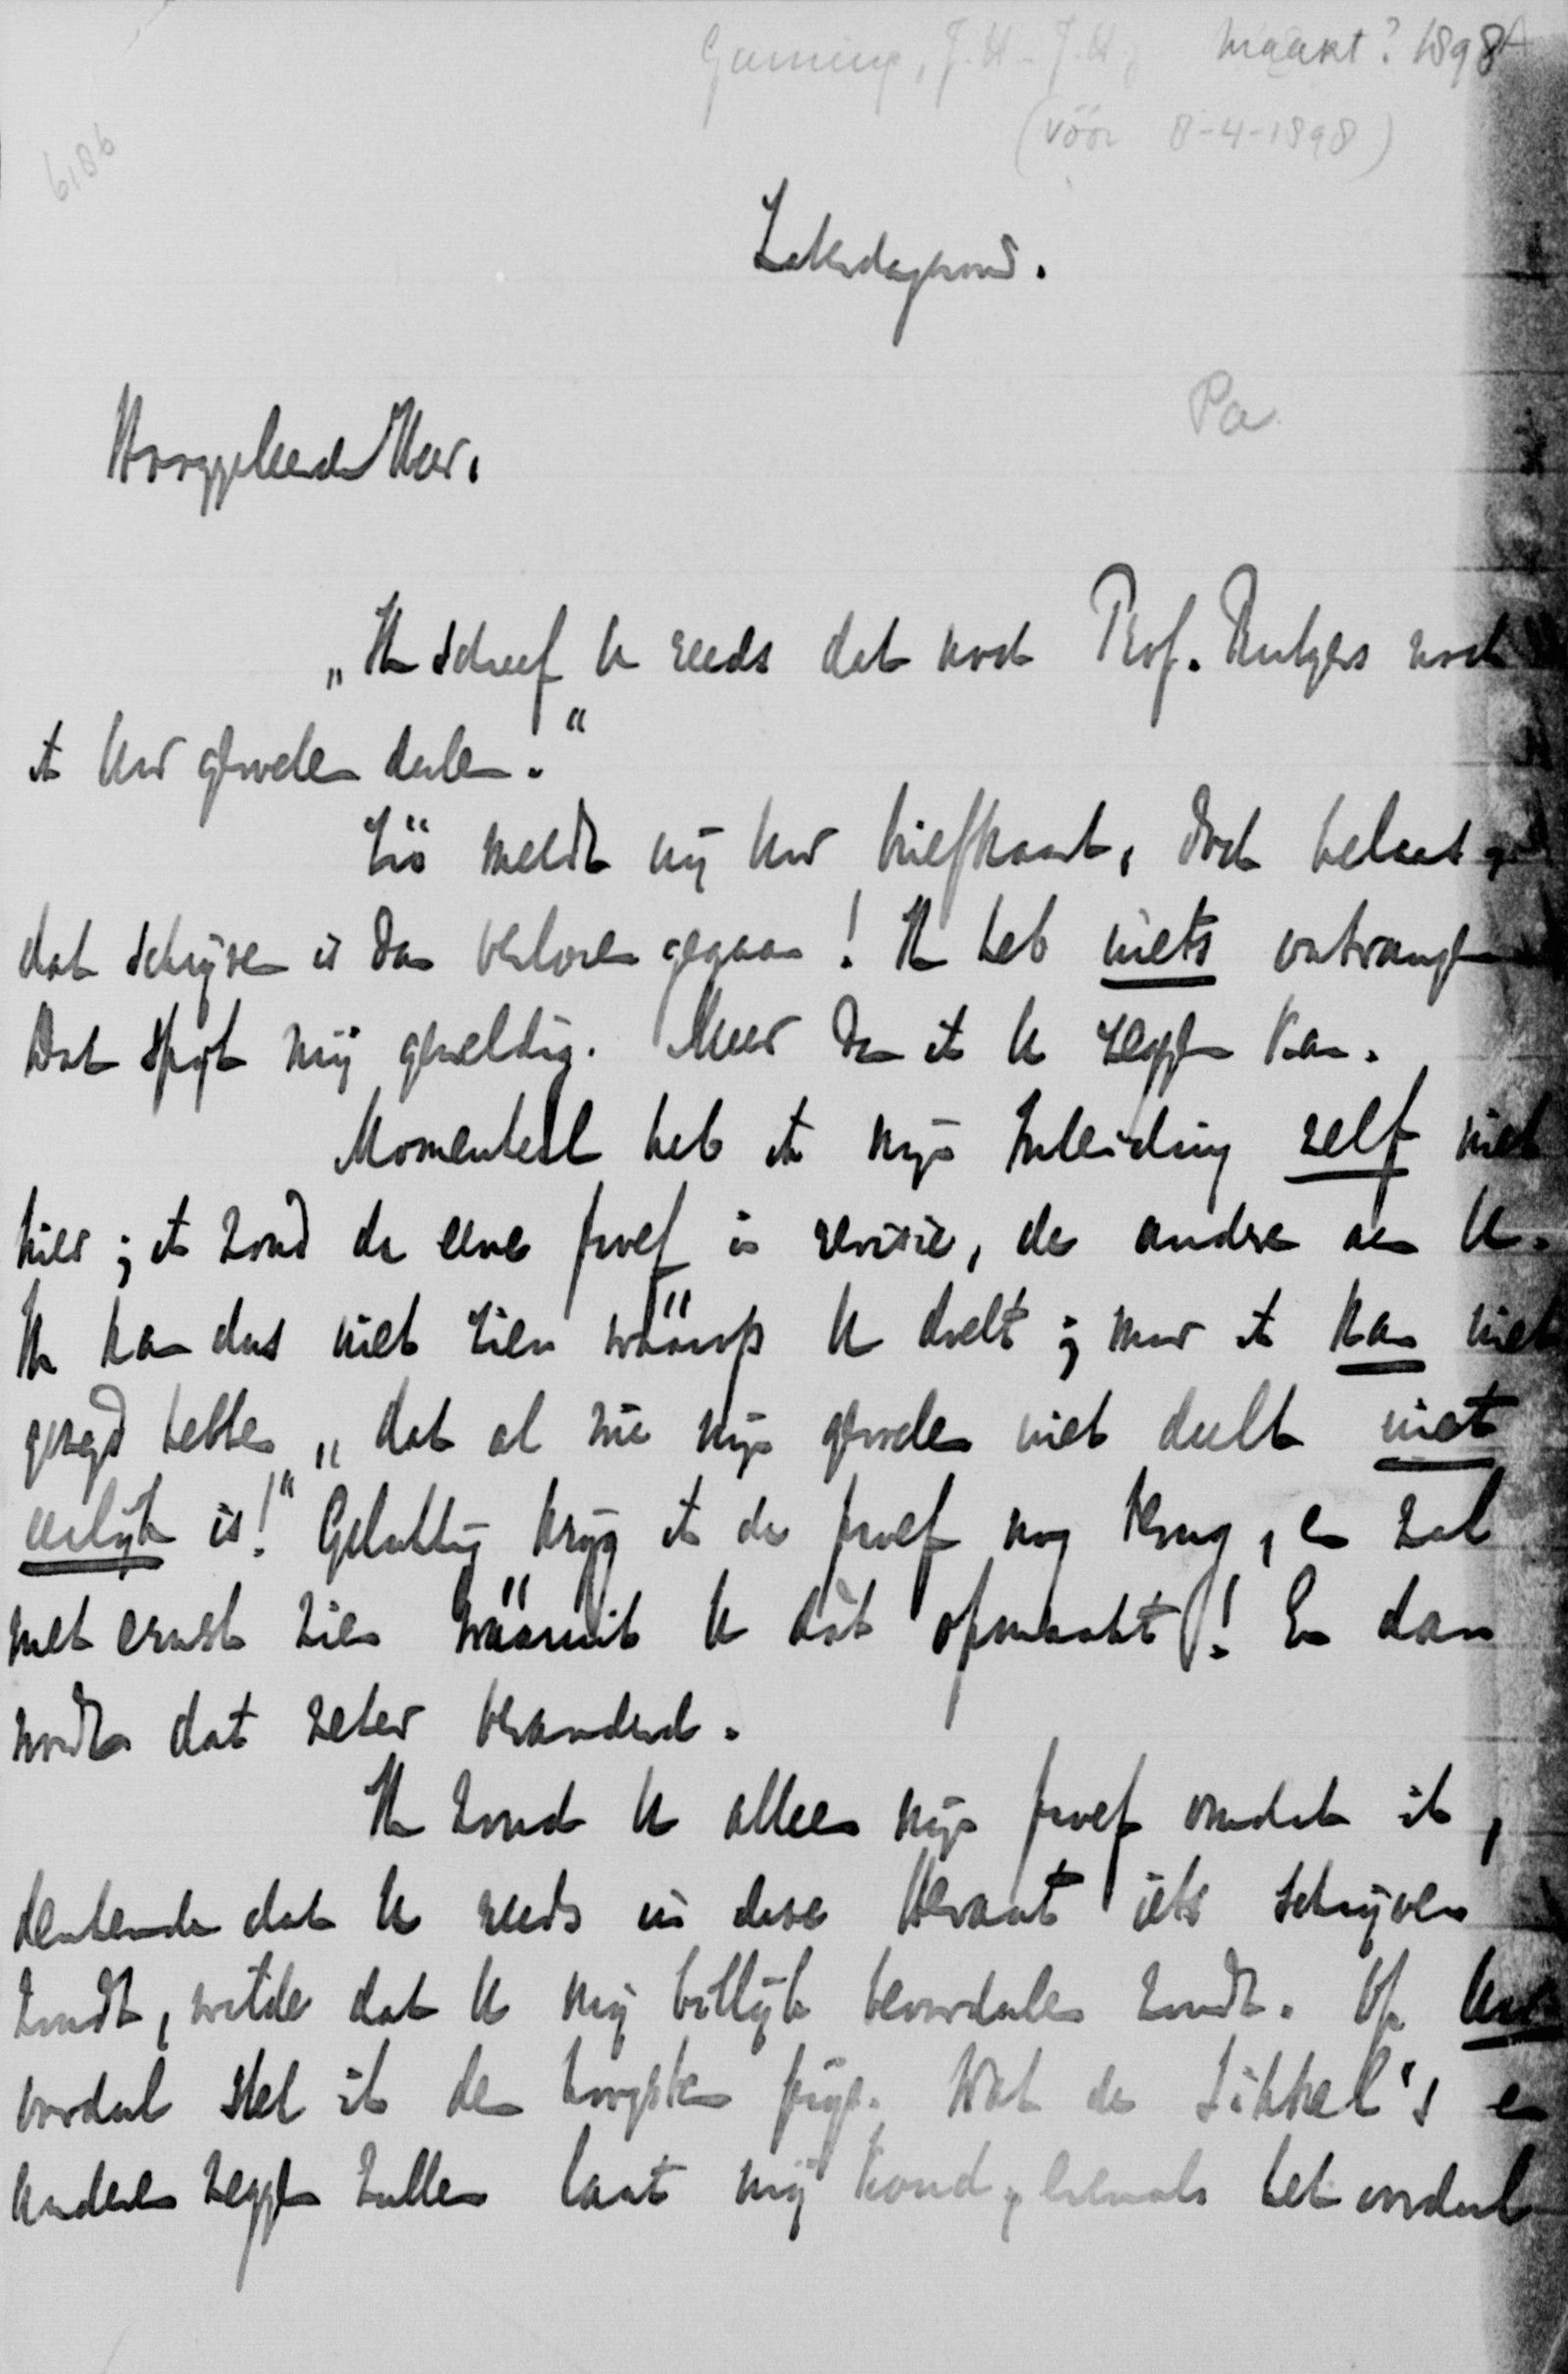 Gunning, J.H. J.Hz maart? 1898
(vóór 8-4-1898)
6186
Zaterdagavond.
Pa
Hooggeleerde Heer.
„Ik schreef U reeds dat noch Prof. Rutgers noch
ik Uw gevoelen deelen."
Zóó meldt mij Uw briefkaart, doch helaas
dat schrijven is dan verloren gegaan! Ik heb niets ontvangen
Dat spijt mij geweldig. Meer dan ik U zeggen kan.
Momenteel heb ik mijn Inleiding zelf niet
hier; ik zond de eene proef in revisie, de andere aan U.
Ik kan dus niet zien wáárop U doelt; maar ik kan niet
gezegd hebben „dat al wie mijn gevoelen niet deelt niet
eerlijk is!" Gelukkig krijg ik de proef nog terug, en zal
met ernst zien wááruit U dát opmaakt! En dan
wordt dat zeker veranderd.
Ik zond U alleen mijn proef omdat ik,
denkende dat U reeds in deze Heraut iets schrijven
zoudt, wilde dat U mij billijk beoordeelen zoudt. Op Uw
oordeel stel ik den hoogsten prijs. Wat de Sikkel's en
anderen zeggen zullen laat mij koud, het oordeel